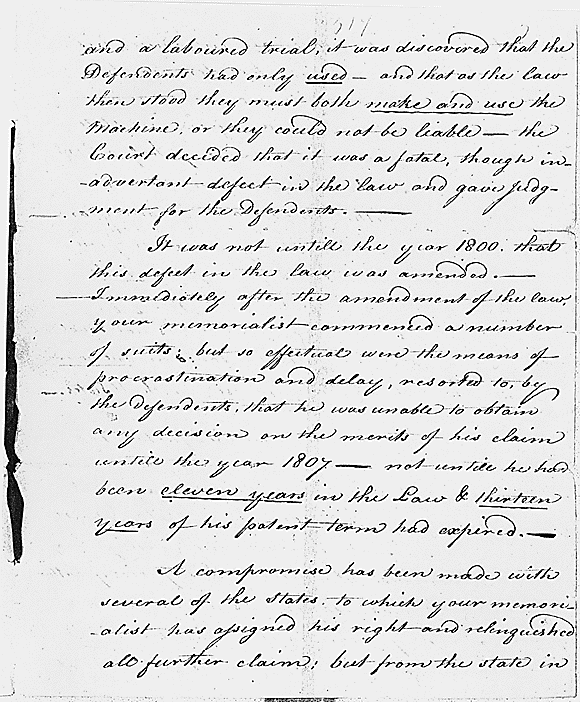 and a laboured trial, it was discovered that the
Defendents had only used — and that as the law
then stood they must both make and use the
machine, or they could not be liable — the
Court decided that it was a fatal, though in-
-advertant defect in the law and gave judg-
-ment for the Defendents. —
It was not untill the year 1800. that
this defect in the law was amended. —
Immediately after the amendment of the law,
your memorialist commenced a number
of suits; but so effectual were the means of
procrastination and delay, resorted to, by
the defendents, that he was unable to obtain
any decision on the merits of his claim
untill the year 1807 — not untill he had
been eleven years in the Law & thirteen
years of his patent term had expired. —
A compromise has been made with
several of the states, to which your memori-
-alist has assigned his right and relinquished
all further claim; but from the state in